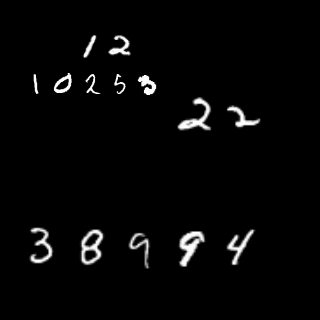 12
10253
22
38994